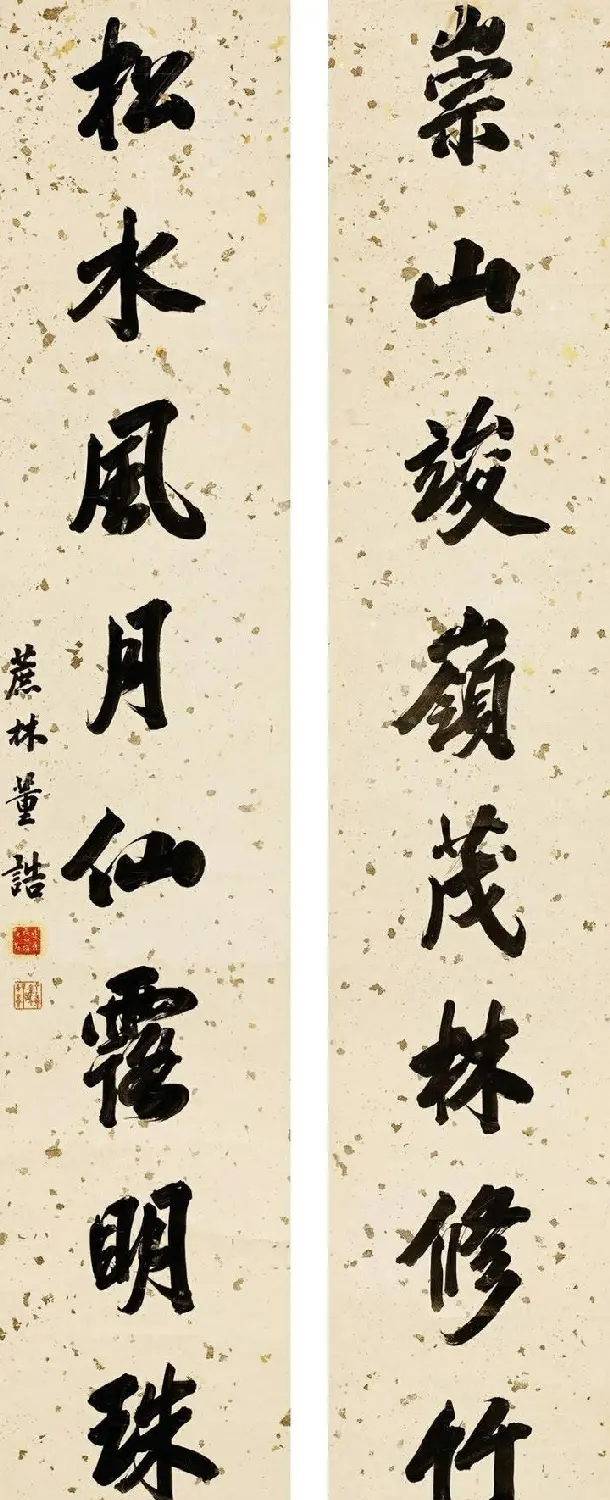 崇山竣嶺茂林修竹
松水風月仙露明珠
蔗林董誥